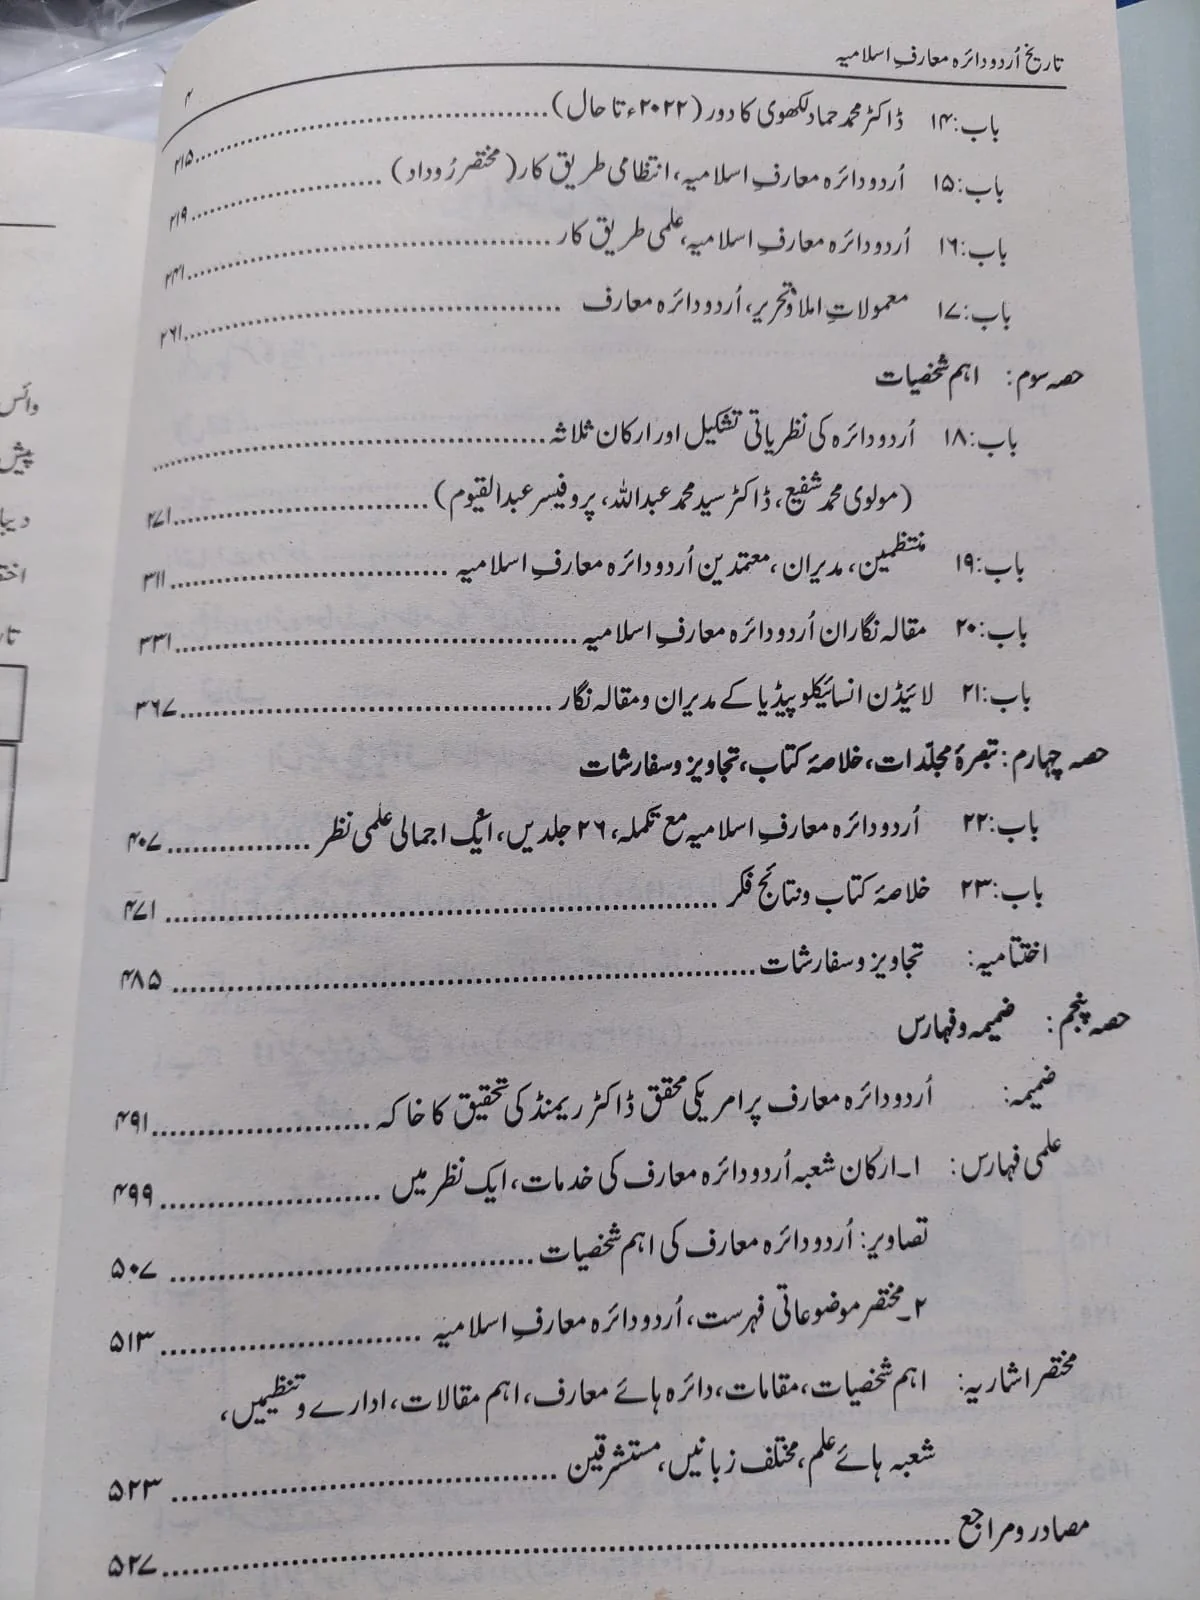 تاریخ اُردو دائرہ معارفِ اسلامیہ
۴
باب:۱۴ ڈاکٹر محمد حماد لکھوی کا دور (۲۰۲۲ء تا حال)........................۲۱۵
باب:۱۵ اُردو دائرہ معارفِ اسلامیہ، انتظامی طریق کار (مختصر رُوداد)........................۲۱۹
باب:۱۶ اُردو دائرہ معارفِ اسلامیہ، علمی طریق کار........................۲۴۱
باب:۱۷ معمولاتِ املا وتحریر، اُردو دائرہ معارف........................۲۶۱
حصہ سوم: اہم شخصیات
باب:۱۸ اُردو دائرہ کی نظریاتی تشکیل اور ارکان ثلاثہ........................
(مولوی محمد شفیع، ڈاکٹر سید محمد عبداللہ، پروفیسر عبدالقیوم)........................۲۷۱
باب:۱۹ منتظمین، مدیران، معتمدین اُردو دائرہ معارفِ اسلامیہ........................۳۱۱
باب:۲۰ مقالہ نگاران اُردو دائرہ معارفِ اسلامیہ........................۳۳۱
باب:۲۱ لائیڈن انسائیکلوپیڈیا کے مدیران ومقالہ نگار........................۳۶۷
حصہ چہارم: تبصرۂ مجلّدات، خلاصۂ کتاب، تجاویز وسفارشات
باب:۲۲ اُردو دائرہ معارفِ اسلامیہ مع تکملہ، ۲۶ جلدیں، ایک اجمالی علمی نظر................۴۰۷
باب:۲۳ خلاصۂ کتاب ونتائج فکر........................۴۷۱
اختتامیہ: تجاویز وسفارشات........................۴۸۵
حصہ پنجم: ضمیمہ وفہارس
ضمیمہ: اُردو دائرہ معارف پر امریکی محقق ڈاکٹر ریمنڈ کی تحقیق کا خاکہ........................۴۹۱
علمی فہارس: ۱۔ارکان شعبہ اُردو دائرہ معارف کی خدمات، ایک نظر میں........................۴۹۹
تصاویر: اُردو دائرہ معارف کی اہم شخصیات........................۵۰۷
۲۔مختصر موضوعاتی فہرست، اُردو دائرہ معارفِ اسلامیہ........................۵۱۳
مختصر اشاریہ: اہم شخصیات، مقامات، دائرہ ہائے معارف، اہم مقالات، ادارے وتنظیمیں،
شعبہ ہائے علم، مختلف زبانیں، مستشرقین........................۵۲۳
مصادر ومراجع........................۵۲۷